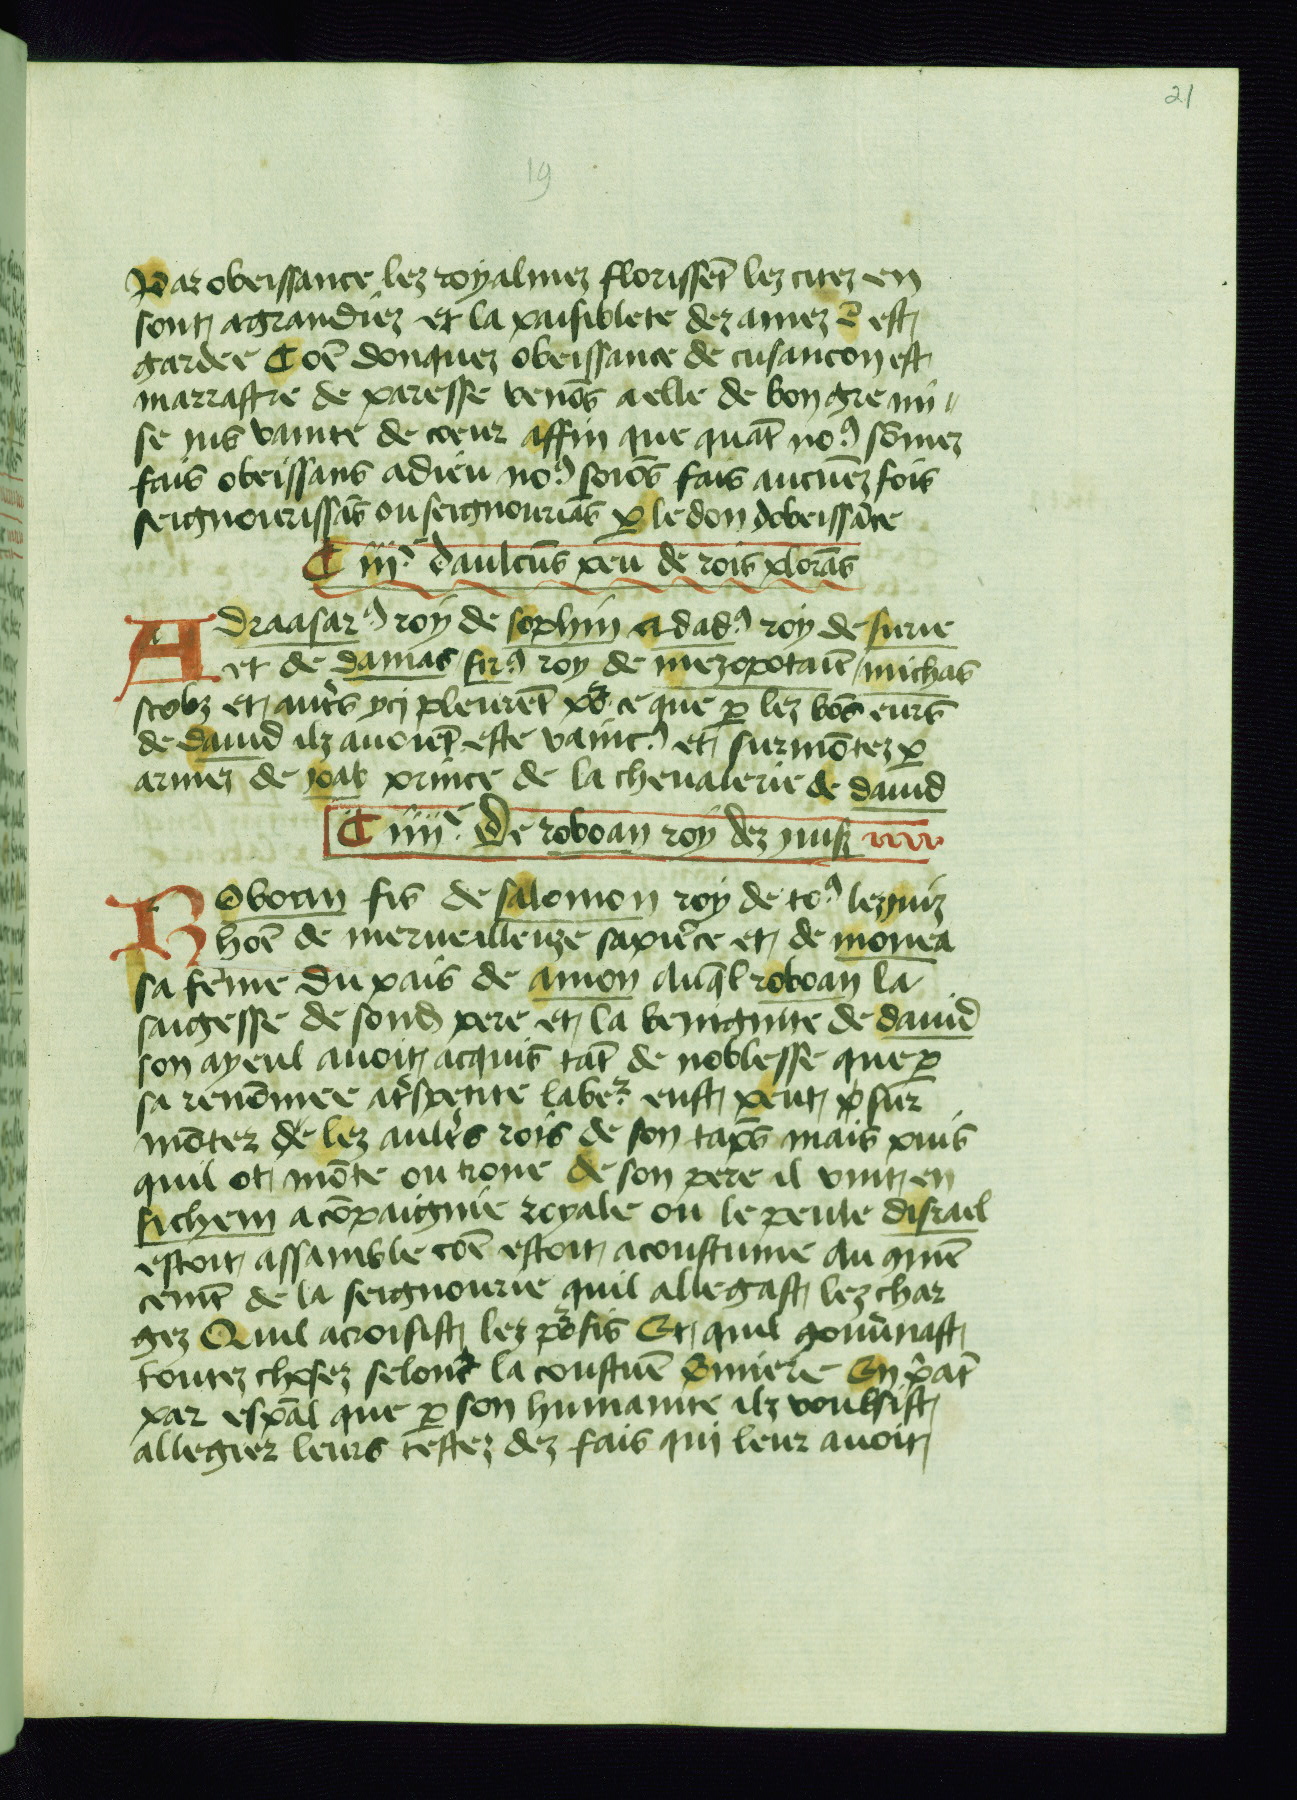 21
19
Par obeissance lez royalmez florissẽt lez citez en
sont agrandiez et la paisiblete dez amez ẽ est
gardee Coẽ donquez obeissance de cusancon est
marrastre de paresse venõs a elle de bon gre mi //
se jus vainte de coeur affin que quãt noꝰ sõmez
fais obeissans a dieu noꝰ soiõs fais aucunẽz fois
seignourissãs ou seignouriãs ꝑ le don dobeissãce
C iijᵉ daulcũs peu de rois plorãs
Adraasarꝰ roy de sophin adadꝰ roy de surie
et de damas sirꝰ roy de mezopotaiẽ / michas
scobz et autr̃s yci pleurẽt po² ce que ꝑ lez bõs eurs
de dauid ilz auoiẽt este vaincꝰ et surmõtez ꝑ
armez de joab prince de la cheualerie de dauid
C iiijᵉ De roboan roy dez juifz
Roboan fis de salomon roy de toꝰ lez juiz
hoẽ de merueilleuze sapiẽce et de moneа
sa fẽme du pais de amon auq̃l roboan la
saigesse de sond pere et la benignite de dauid
son ayeul auoit acquis tãt de noblesse que ꝑ
sa renõmee atr̃spetite labe² eust peut sur
mõter de lez aultr̃s rois de son tãps mais puis
quil ot mõte ou trone de son pere il vint en
sichem acõpaignie royale ou le peule disrael
estoit assamble coẽ estoit acoustume au q̃mẽ
cemẽt de la seignourie quil allegast lez char
gez Quil acroisist lez po²fis Et quil gouu̾nast
toutez chosez selont la coustuẽ p̃miere En p̱lãt
par esp̃al que ꝑ son humanite ilz voulsist
allegier leurs testez dez fais qui leur auoit